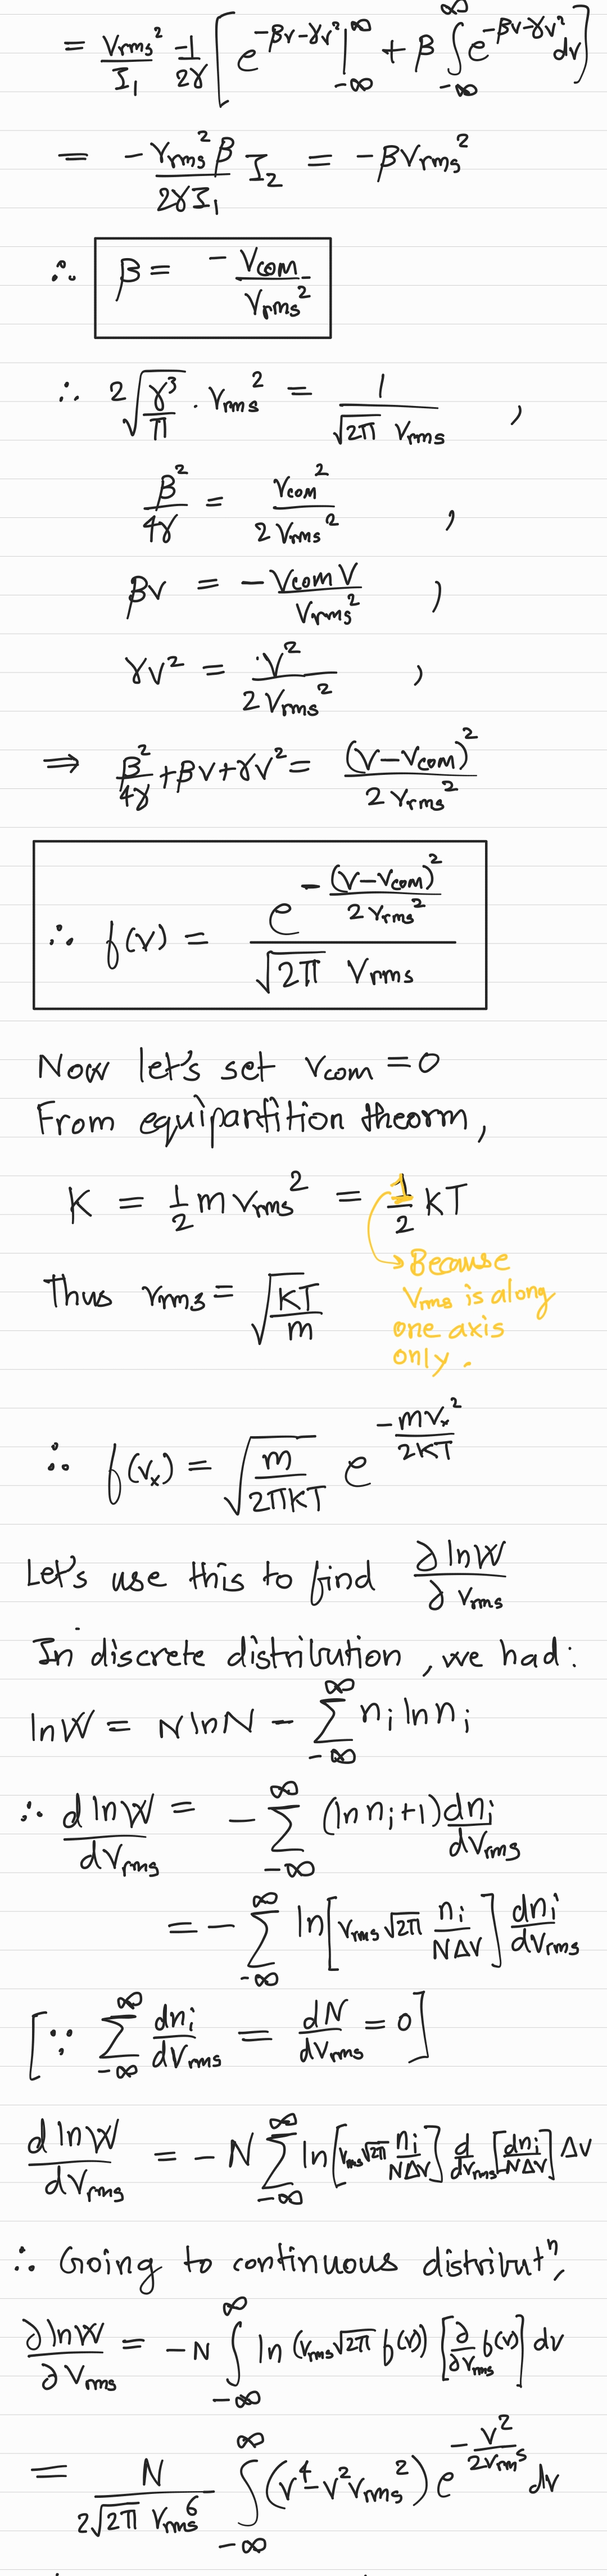 = V_rms²/I₁ -1/2γ [ e^(-βv-γv²) |_(-∞)^∞ + β ∫_(-∞)^∞ e^(-βv-γv²) dv ]
= - V_rms² β / 2γI₁ I₂ = -βV_rms²
∴ β = - V_com / V_rms²
∴ 2√(γ³/π) · V_rms² = 1 / √2π V_rms ,
β²/4γ = V_com² / 2V_rms² ,
βv = - V_com V / V_rms² ,
γv² = V² / 2V_rms² ,
⇒ β²/4γ + βv + γv² = (v-v_com)² / 2V_rms²
∴ f(v) = e^(-(v-v_com)²/2V_rms²) / √2π V_rms
Now let's set v_com = 0
From equipartition theorm,
K = 1/2 m v_rms² = 1/2 kT
Because
V_rms is along
one axis
only.
Thus v_rms = √(kT/m)
∴ f(v_x) = √(m/2πkT) e^(-mv_x²/2kT)
Let's use this to find ∂lnW/∂v_rms
In discrete distribution, we had:
lnW = NlnN - ∑_(-∞)^∞ n_i ln n_i
∴ d lnW/dV_rms = - ∑_(-∞)^∞ (ln n_i+1) dn_i/dV_rms
= - ∑_(-∞)^∞ ln[V_rms √2π n_i/NΔv] dn_i/dV_rms
[∵ ∑_(-∞)^∞ dn_i/dV_rms = dN/dV_rms = 0]
d lnW/dV_rms = - N ∑_(-∞)^∞ ln[V_rms √2π n_i/NΔv] d/dV_rms [dn_i/NΔv] Δv
∴ Going to continuous distributⁿ,
∂lnW/∂V_rms = -N ∫_(-∞)^∞ ln (V_rms √2π f(v)) [∂/∂V_rms f(v)] dv
= N / 2√2π V_rms⁶ ∫_(-∞)^∞ (v⁴-v²V_rms²) e^(-v²/2V_rms⁵) dv